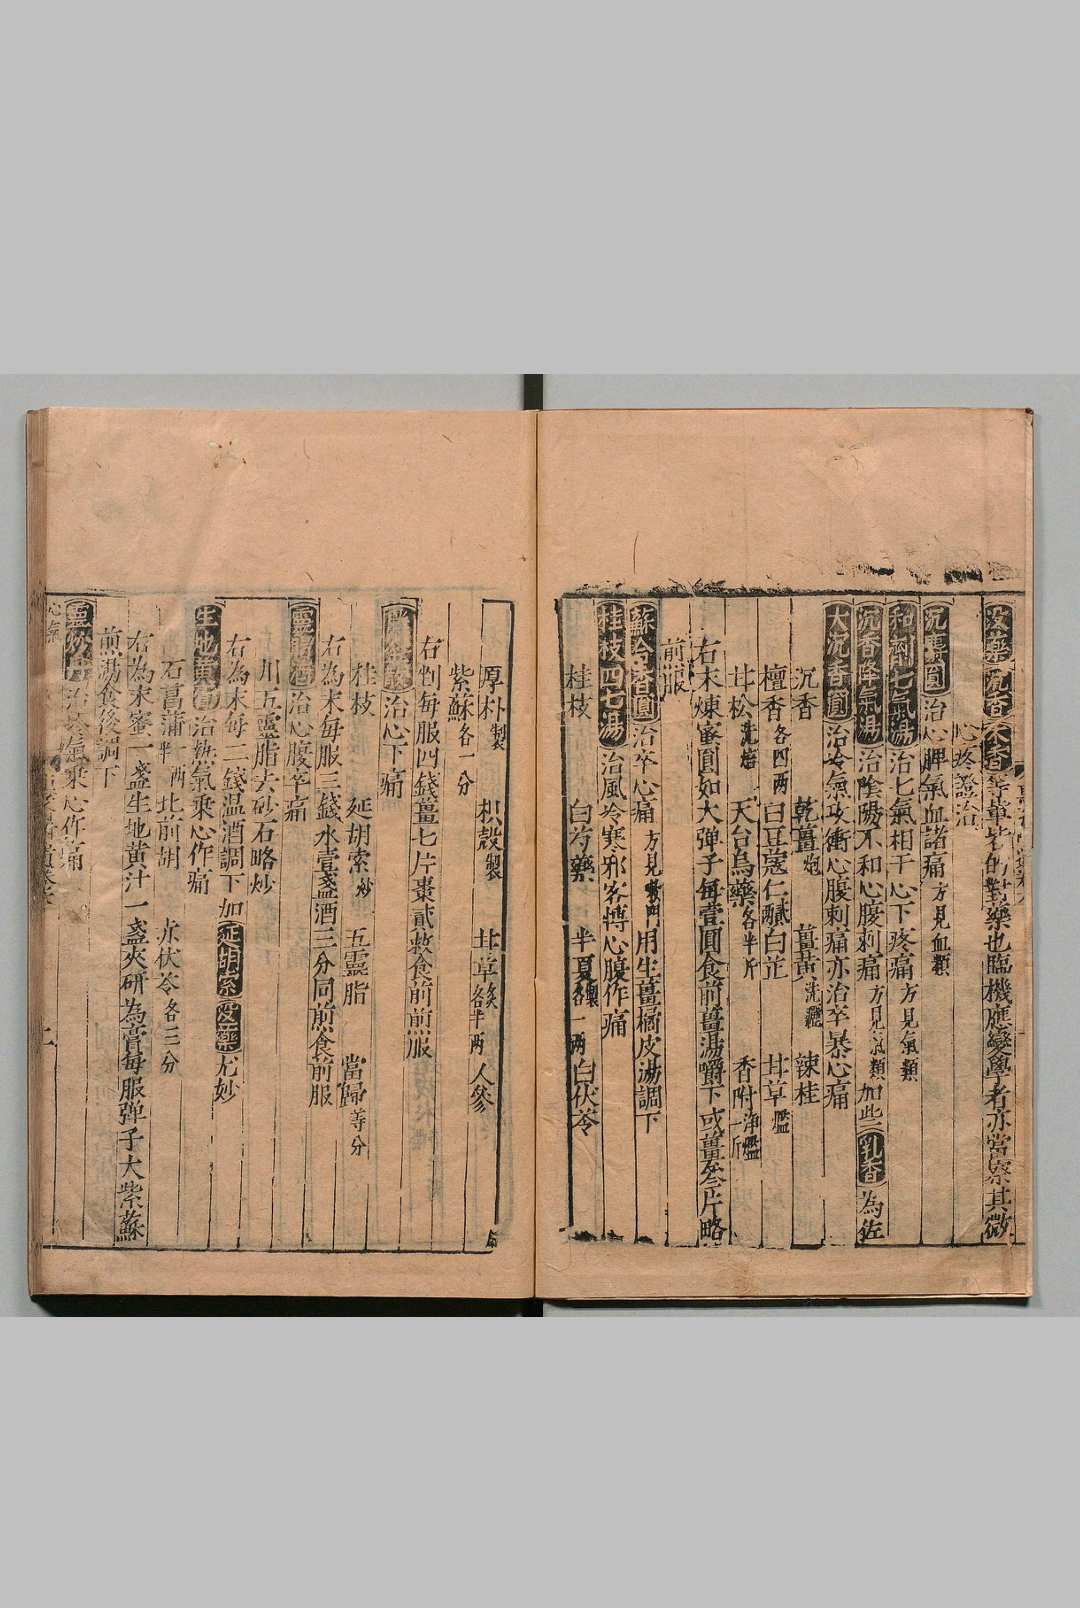 没藥沉香木香等輩皆的對藥也臨機應變學者亦當察其微
心疼證治
沉麝圓治心脾氣血諸痛方見血類
和劑七氣湯治七氣相干心下疼痛方見氣類
沉香降氣湯治陰陽不和心腹刺痛方見氣類加些乳香為佐
大沉香圓治冷氣攻衝心腹刺痛亦治卒暴心痛
沉香 乾薑炮 薑黃洗 辣桂
檀香各四兩 白豆蔻仁 白芷 甘草
甘松洗焙 天台烏藥各半斤 香附淨 一斤
右末煉蜜圓如大彈子每壹圓食前薑湯嚼下或薑叁片略
煎服
蘇合香圓治卒心痛方見 門用生薑橘皮湯調下
桂枝四七湯治風冷寒邪客搏心腹作痛
桂枝 白芍藥 半夏製各一兩 白茯苓
厚朴製 枳殼製 甘草 半兩 人參
紫蘇各一分
右剉每服四錢薑七片棗貳枚食前煎服
治心下痛
桂枝 延胡索炒 五靈脂 當歸等分
右為末每服三錢水壹盞酒三分同煎食前服
靈脂酒治心腹卒痛
川五靈脂去砂石略炒
右為末每二錢溫酒調下加延胡索沒藥尤妙
生地黃圓治熱氣乘心作痛
石菖蒲半兩 北前胡 赤茯苓各三分
右為末蜜一盞生地黃汁一盞夾研為膏每服彈子大紫蘇
煎湯食後調下
治 氣乘心作痛
心氣